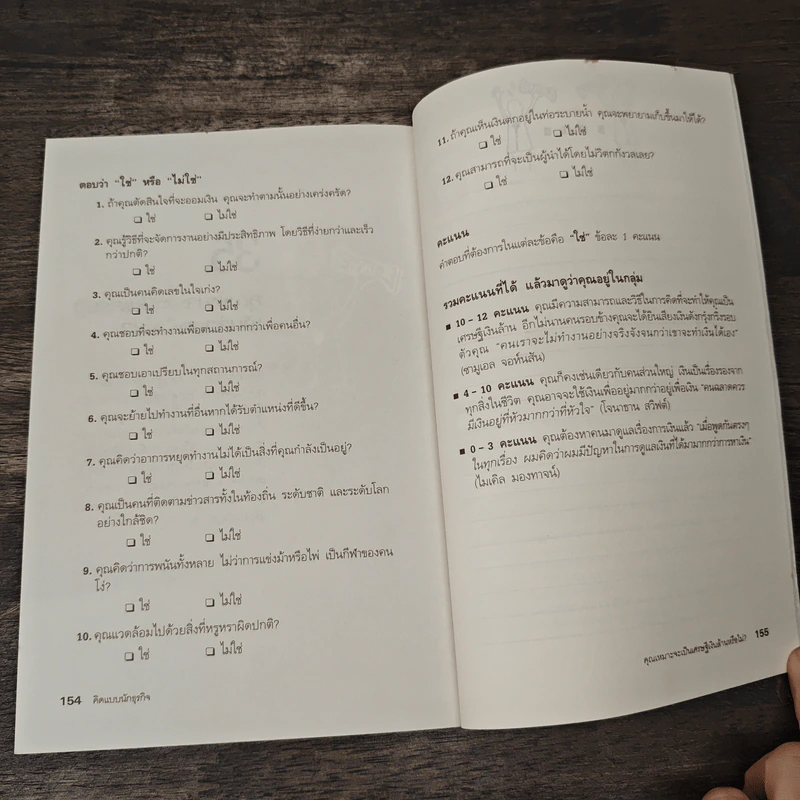 ตอบว่า "ใช่" หรือ "ไม่ใช่"
1. ถ้าคุณตัดสินใจที่จะออมเงิน คุณจะทำตามนั้นอย่างเคร่งครัด?
❏ ใช่ ❏ ไม่ใช่
2. คุณรู้วิธีที่จะจัดการงานอย่างมีประสิทธิภาพ โดยวิธีที่ง่ายกว่าและเร็ว
กว่าปกติ?
❏ ใช่ ❏ ไม่ใช่
3. คุณเป็นคนคิดเลขในใจเก่ง?
❏ ใช่ ❏ ไม่ใช่
4. คุณชอบที่จะทำงานเพื่อตนเองมากกว่าเพื่อคนอื่น?
❏ ใช่ ❏ ไม่ใช่
5. คุณชอบเอาเปรียบในทุกสถานการณ์?
❏ ใช่ ❏ ไม่ใช่
6. คุณจะย้ายไปทำงานที่อื่นหากได้รับตำแหน่งที่ดีขึ้น?
❏ ใช่ ❏ ไม่ใช่
7. คุณคิดว่าอาการหยุดทำงานไม่ได้เป็นสิ่งที่คุณกำลังเป็นอยู่?
❏ ใช่ ❏ ไม่ใช่
8. คุณเป็นคนที่ติดตามข่าวสารทั้งในท้องถิ่น ระดับชาติ และระดับโลก
อย่างใกล้ชิด?
❏ ใช่ ❏ ไม่ใช่
9. คุณคิดว่าการพนันทั้งหลาย ไม่ว่าการแข่งม้าหรือไพ่ เป็นกีฬาของคน
โง่?
❏ ใช่ ❏ ไม่ใช่
10. คุณแวดล้อมไปด้วยสิ่งที่หรูหราผิดปกติ?
❏ ใช่ ❏ ไม่ใช่
154 คิดแบบนักธุรกิจ
11. ถ้าคุณเห็นเงินตกอยู่ในท่อระบายน้ำ คุณจะพยายามเก็บขึ้นมาให้ได้?
❏ ใช่ ❏ ไม่ใช่
12. คุณสามารถที่จะเป็นผู้นำได้โดยไม่วิตกกังวลเลย?
❏ ใช่ ❏ ไม่ใช่
คะแนน
คำตอบที่ต้องการในแต่ละข้อคือ "ใช่" ข้อละ 1 คะแนน
รวมคะแนนที่ได้ แล้วมาดูว่าคุณอยู่ในกลุ่ม
■ 10 – 12 คะแนน คุณมีความสามารถและวิธีในการคิดที่จะทำให้คุณเป็น
เศรษฐีเงินล้าน อีกไม่นานคนรอบข้างคุณจะได้ยินเสียงเงินดังกรุ๋งกริ๋งรอบ
ตัวคุณ "คนเราจะไม่ทำงานอย่างจริงจังจนกว่าเขาจะทำเงินได้เอง"
(ซามูเอล จอห์นสัน)
■ 4 – 10 คะแนน คุณก็คงเช่นเดียวกับคนส่วนใหญ่ เงินเป็นเรื่องรองจาก
ทุกสิ่งในชีวิต คุณอาจจะใช้เงินเพื่ออยู่มากกว่าอยู่เพื่อเงิน "คนฉลาดควร
มีเงินอยู่ที่หัวมากกว่าที่หัวใจ" (โจนาธาน สวิฟต์)
■ 0 – 3 คะแนน คุณต้องหาคนมาดูแลเรื่องการเงินแล้ว "เมื่อพูดกันตรงๆ
ในทุกเรื่อง ผมคิดว่าผมมีปัญหาในการดูแลเงินที่ได้มามากกว่าการหาเงิน"
(ไมเคิล มองทาจน์)
คุณเหมาะจะเป็นเศรษฐีเงินล้านหรือไม่? 155